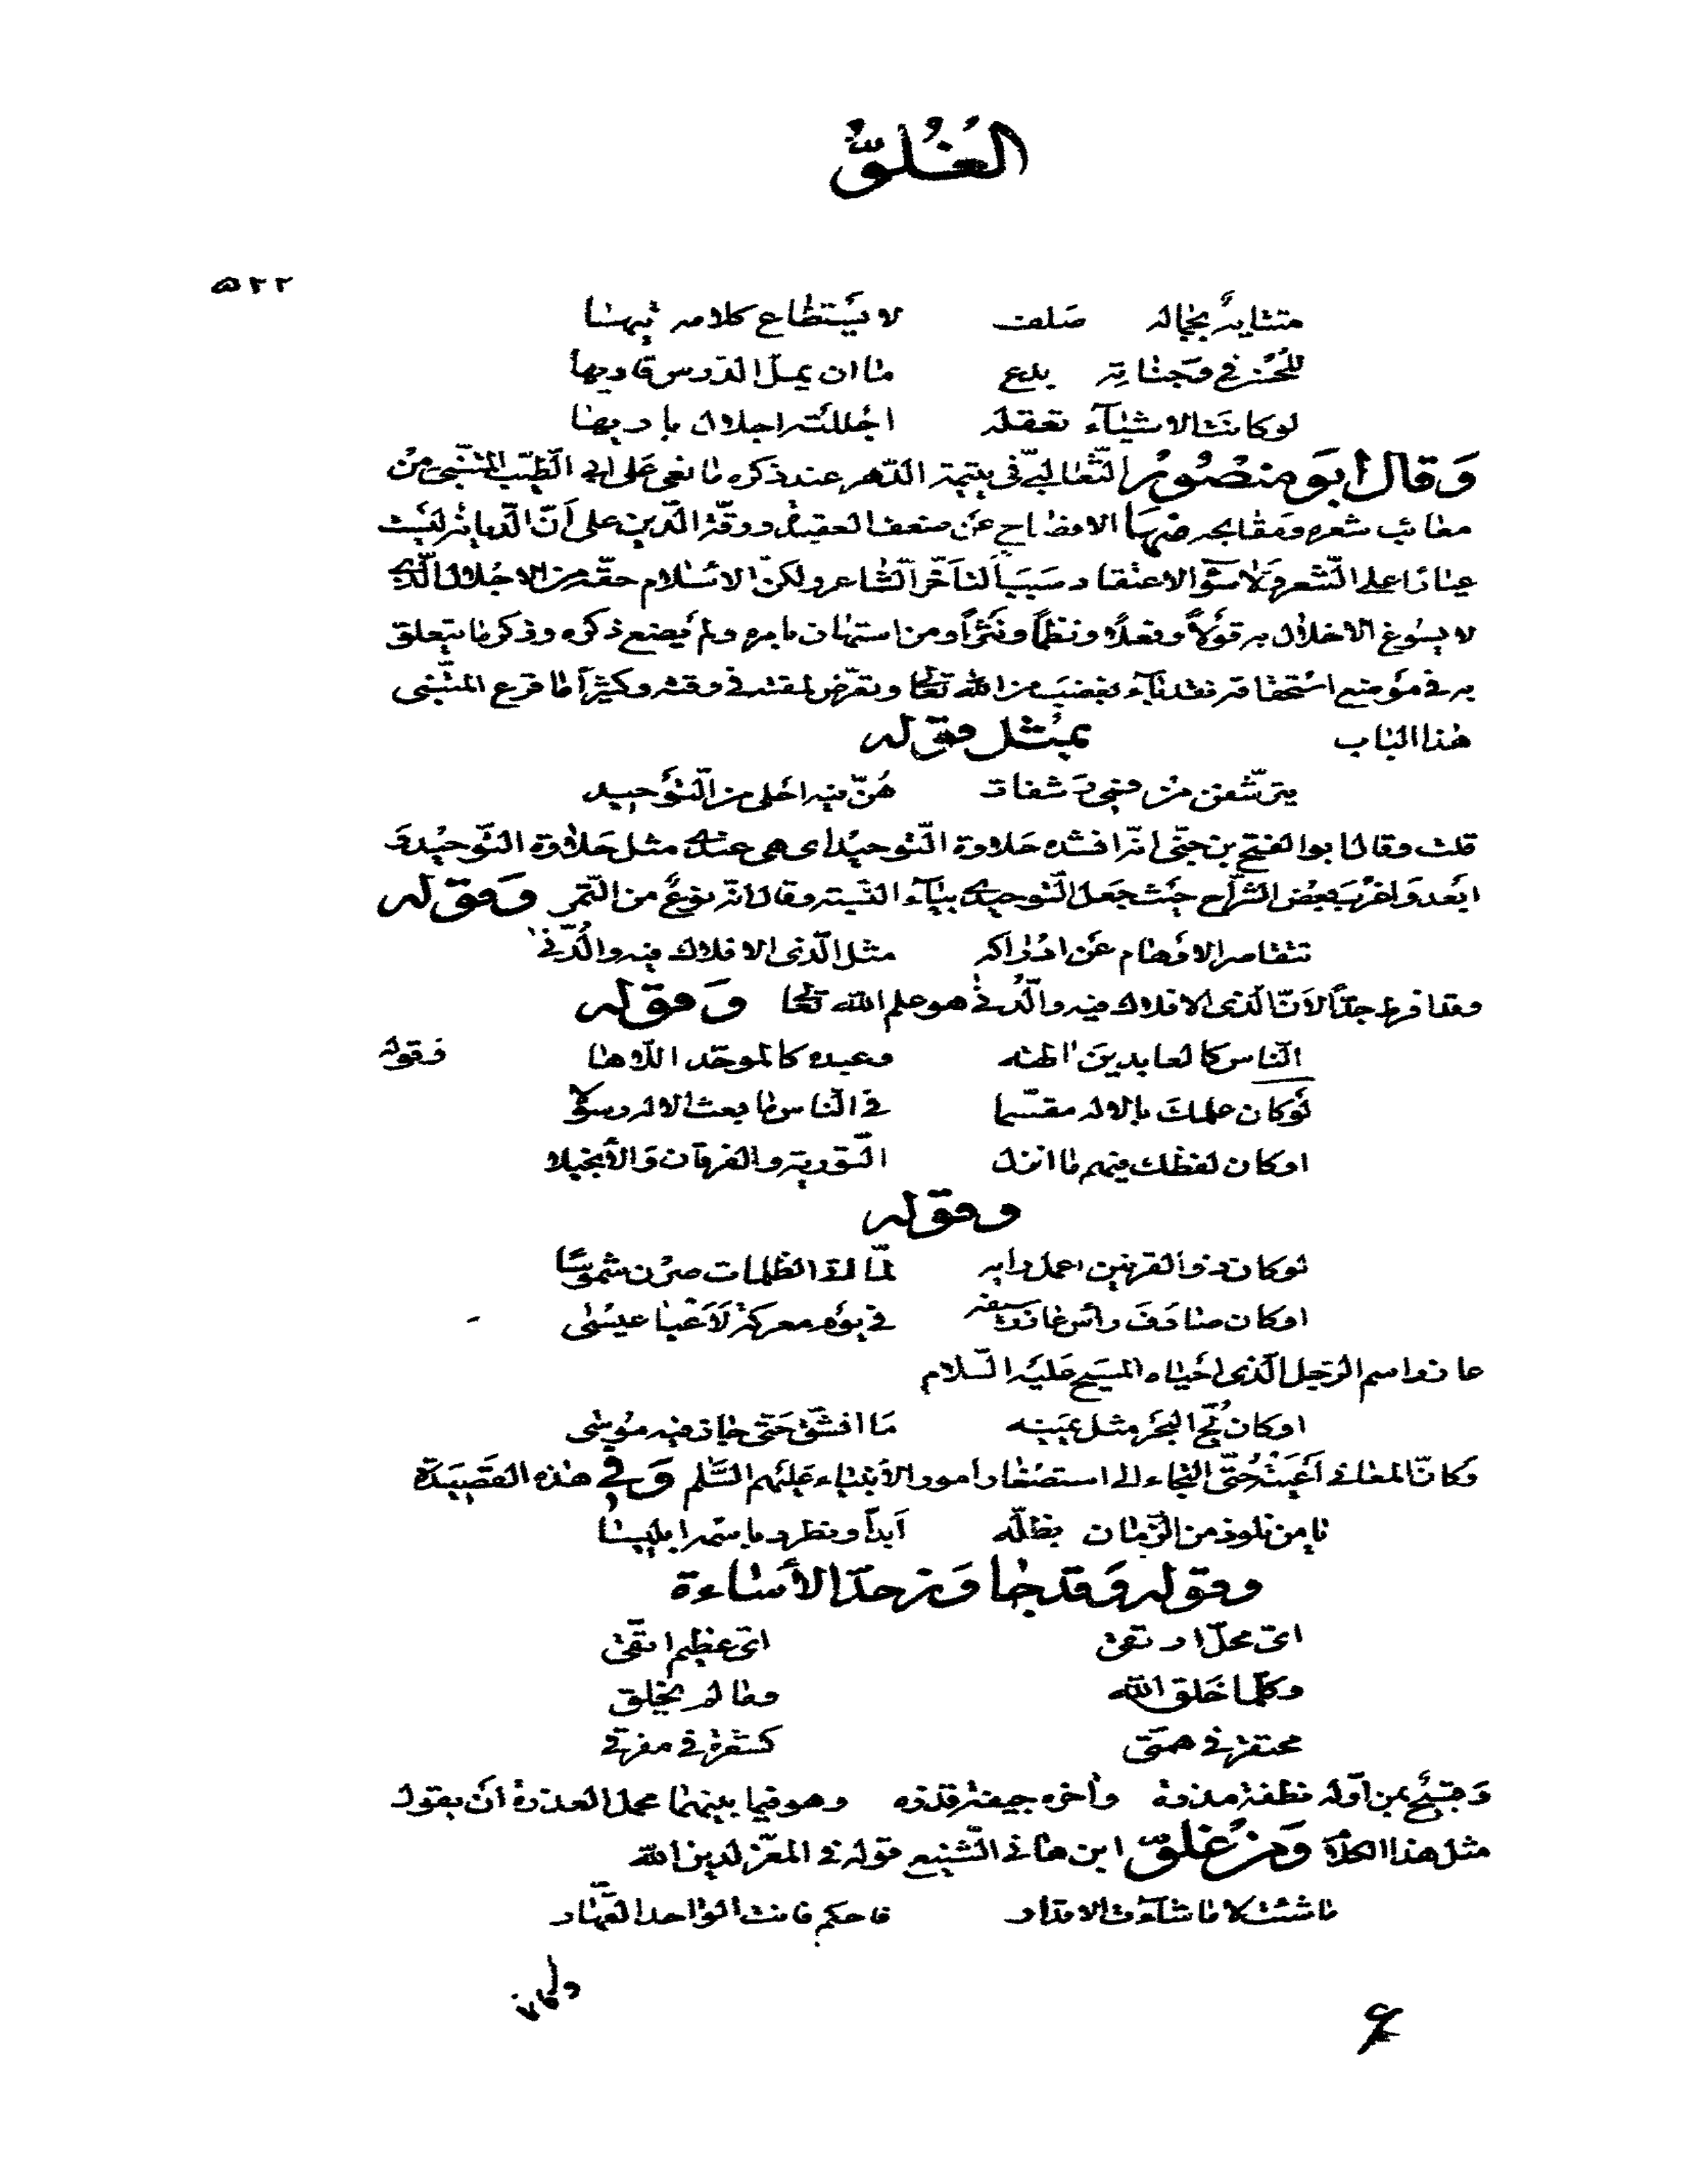 الغُلوّ
٥٢٢
متتايهٌ بجماله صلف لا يُستطاع كلامه تيها
للحُسْن في وجناته بدع ما ان يمل الدرس قاريها
لو كانت الاشياء تعقله اجللنه اجلال باريها
وَقال ابَو منصُور الثّعالبيّ في يتيمة الدّهر عند ذكره ما نعى على ابي الطّيب المتنبّى من
معائب شعره ومقابحه ومنها الافصاح عن ضعف العقيدة ورقّة الدّين على أنّ الدّيانة ليست
عيارًا على الشعر وَلا سوء الاعتقاد سَببَاً لتأخّر الشّاعر ولكنّ للاسلام حقّه من الاجلال الّذى
لا يسُوغ الاخلال به قولاً وفعلاً ونظماً ونثراً ومن استهان بامره ولم يضع ذكره وذكر ما يتعلق
به في موضع استحقاقه فقد باء بغضب من الله تعالى وتعرّض لمقته في وقته وكثيراً ما قرع المتنبى
هذا الباب بمثل قوله
يترشّفن من فمي رَشفات هُنّ فيه احلى من التّوحيد
قلت وقال ابو الفتح بن جنّى انّه انشده حَلاوة التّوحيد اى هى عندى مثل حَلاوة التّوحيد وَ
ابعد وَاغربَ بعض الشرّاح حيث جعل التّوحيدى بياء النسبة وقال انّه نوعٌ من التّمر وَقوله
تتقاصر الافهام عن ادراكه مثل الّذى الافلاك فيه والدّنى
وقد افرط جدّاً لأنّ الّذى الافلاك فيه والدّنى هو علم الله تعالى وَقوله
النّاس كالعابدين الهة وعبده كالموحّد اللّاها وَقوله
لَو كان علمك بالاله مقسّما في النّاس ما بعث الاله رسولا
او كان لفظك فيهم ما انزل التّورية والفرقان وَالأنجيلا
وقوله
لو كان ذو القرنين اعمل رايه لمّا اتى الظلمات صرن شموسًا
او كان صادَفَ رأس عاذر سيفه في يوم معركة لَأَعْيا عيسى
عاذر اسم الرّجل الّذى احياه المسيح عليه السّلام
او كان لُجّ البحر مثل يمينه مَا انشقّ حَتّى جاز فيه مُوسى
وَكانّ المعانى أعيَتْهُ حتّى التجاء الى استصغار امور الأنبياء عليهم السّلم وَفي هذه القصيدة
يا من نلوذ من الزّمان بظلّه أبداً ونطرد باسمه ابليسا
وقوله وَقد جاوَز حدّ الأساءة
اىّ محلّ ارتقى اىّ عظيم اتّقى
وكلّما خَلق الله وما لم يخلق
محتقر في همّتى كشعرة في مفرقى
وَقبيحٌ بمن اوّله نطفة مذرة وأخره جيفة قذره وهو فيما بينهما محمل العذرة أن يقول
مثل هذا الكلام وَمن غُلوّ ابن هانى الشّنيع قوله في المعزّ لدين الله
ما شئت لا ما شاءت الاقدار فاحكم فانت الواحد القهّار